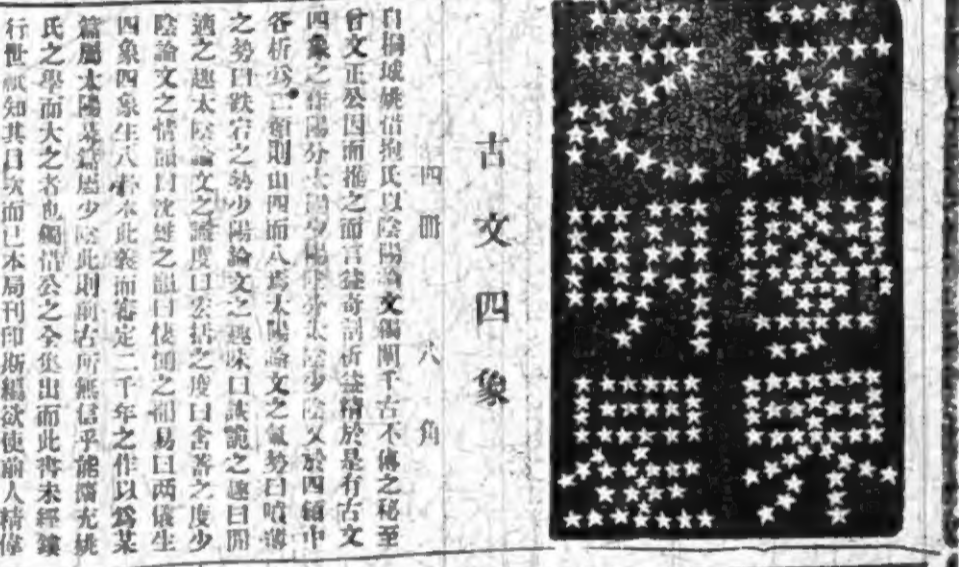 古文四象
四冊　八角
自桐城姚惜抱氏以陰陽論文獨闡千古不傳之秘至
曾文正公因而推之而言益奇剖析益精於是有古文
四象之作陽分太陽少陽陰分太陰少陰又於四類中
各析為二類則由四而八焉太陽論文之氣勢曰噴薄
之勢曰跌宕之勢少陽論文之趣味曰詼詭之趣曰閒
適之趣太陰論文之識度曰宏括之度曰含蓄之度少
陰論文之情韻曰沈雄之韻曰悽惻之韻易曰兩儀生
四象四象生八卦本此義而審定二千年之作以爲某
篇屬太陽某篇屬少陰此則前古所無信乎能擴充姚
氏之學而大之者也獨惜公之全集出而此書未經鏤
行世祇知其目次而已本局刊印斯編欲使前人精偉